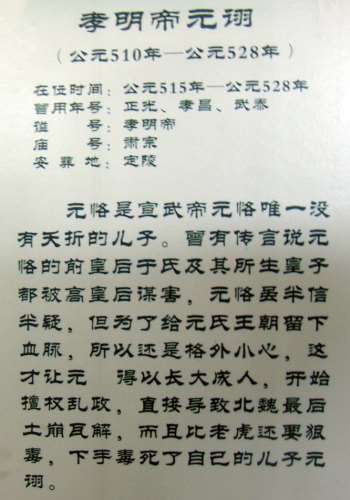 孝明帝元诩
（公元510年—公元528年）
在位时间：公元515年—公元528年
曾用年号：正光、孝昌、武泰
谥　　号：孝明帝
庙　　号：肃宗
安 葬 地：定陵
元恪是宣武帝元恪唯一没
有夭折的儿子。曾有传言说元
恪的前皇后于氏及其所生皇子
都被高皇后谋害，元恪虽半信
半疑，但为了给元氏王朝留下
血脉，所以还是格外小心，这
才让元　得以长大成人，开始
擅权乱政，直接导致北魏最后
土崩瓦解，而且比老虎还要狠
毒，下手毒死了自己的儿子元
诩。